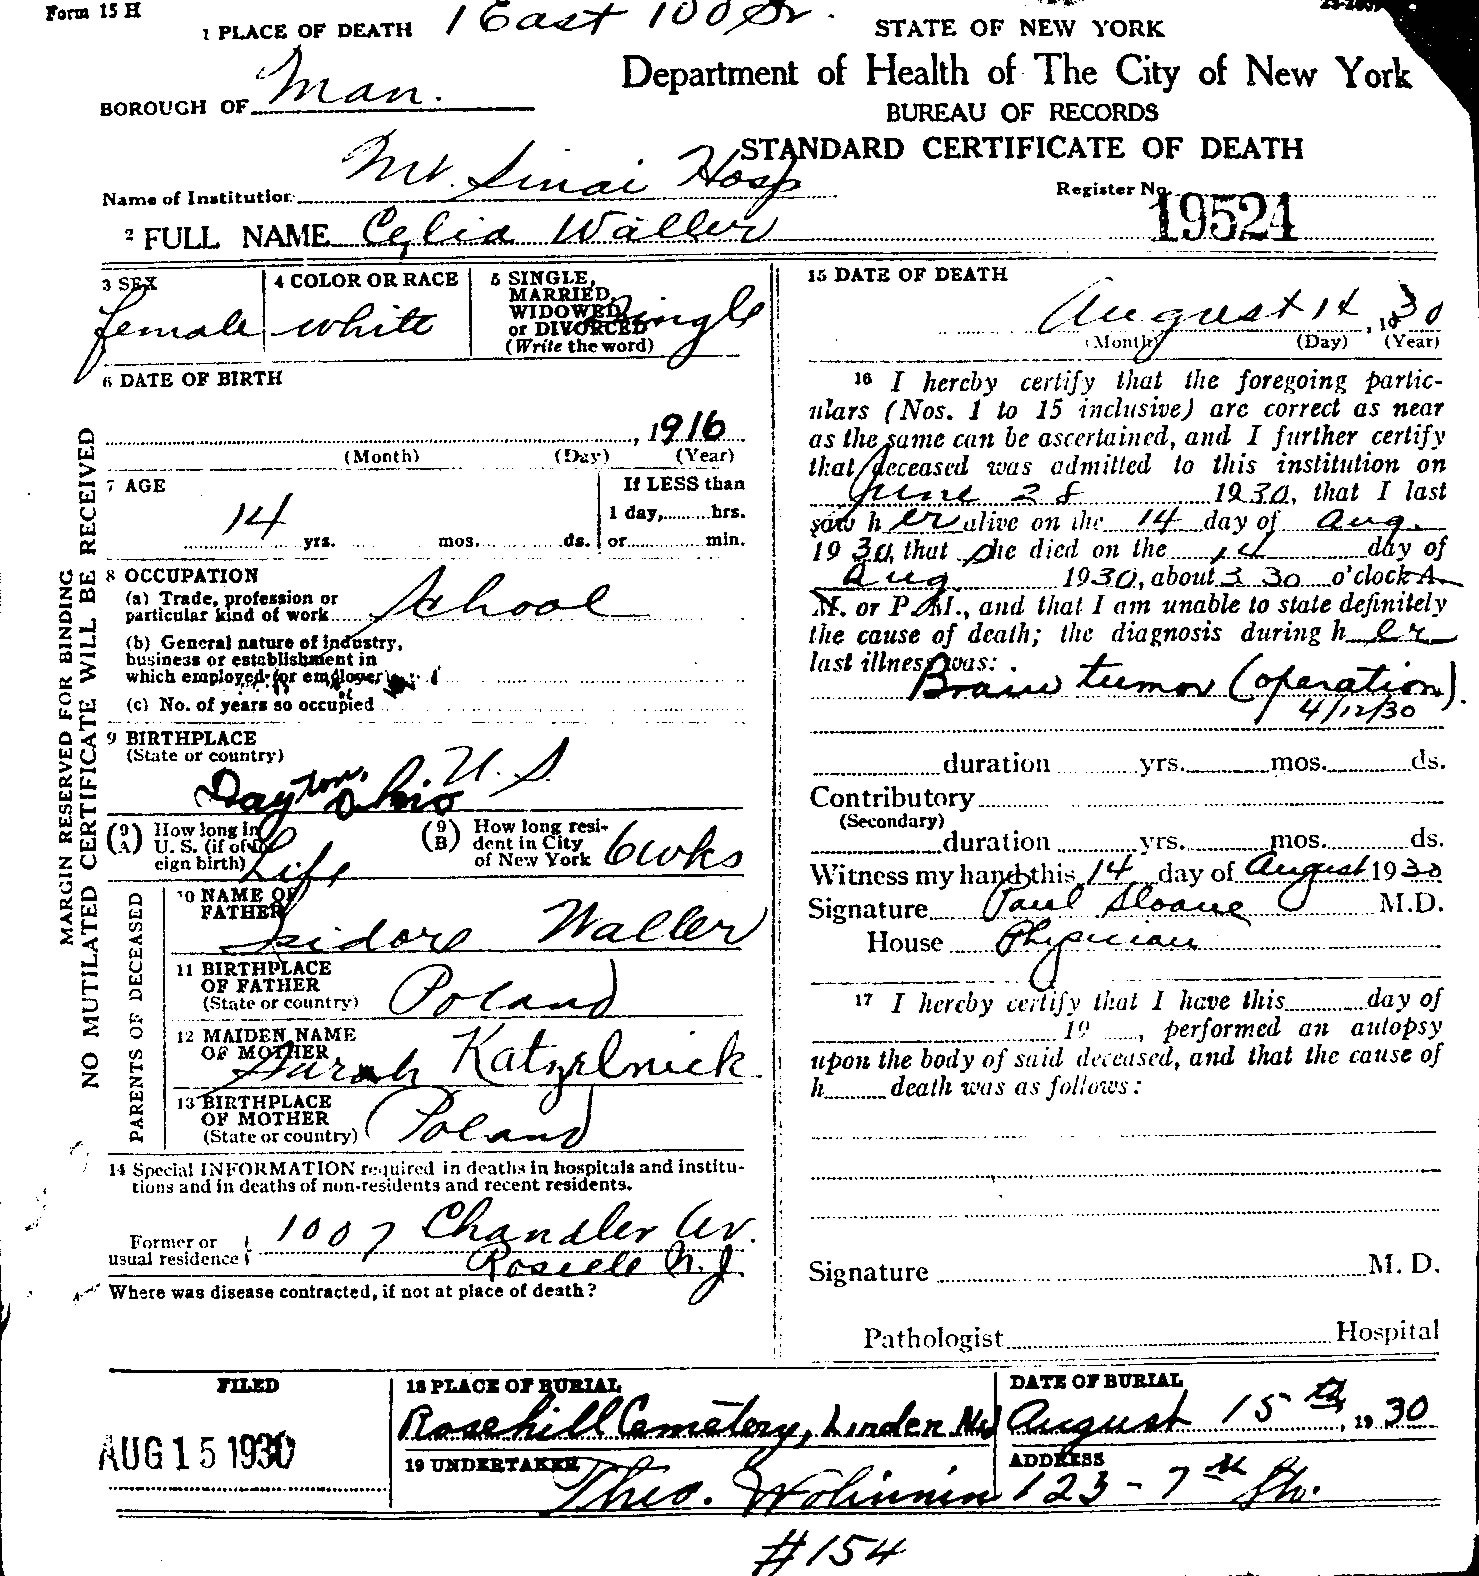 Form 15 H
1 PLACE OF DEATH 1 East 100 St.
STATE OF NEW YORK
Department of Health of The City of New York
BOROUGH OF Man.
BUREAU OF RECORDS
STANDARD CERTIFICATE OF DEATH
Name of Institution Mt. Sinai Hosp
Register No. 19524
2 FULL NAME Celia Waller
3 SEX female
4 COLOR OR RACE white
5 SINGLE,
MARRIED,
WIDOWED,
or DIVORCED
(Write the word) Single
6 DATE OF BIRTH
, 1916
(Month) (Day) (Year)
7 AGE
14 yrs. mos. ds.
If LESS than
1 day, hrs.
or min.
8 OCCUPATION
(a) Trade, profession or
particular kind of work School
(b) General nature of industry,
business or establishment in
which employed (or employer)
(c) No. of years so occupied
9 BIRTHPLACE
(State or country) U. S.
Dayton, Ohio
(9A) How long in
U. S. (if of for-
eign birth) Life
(9B) How long resi-
dent in City
of New York 6wks
PARENTS OF DECEASED
10 NAME OF
FATHER Isidore Waller
11 BIRTHPLACE
OF FATHER
(State or country) Poland
12 MAIDEN NAME
OF MOTHER Sarah Katzelnick
13 BIRTHPLACE
OF MOTHER
(State or country) Poland
14 Special INFORMATION required in deaths in hospitals and institu-
tions and in deaths of non-residents and recent residents.
Former or
usual residence 1007 Chandler Av.
Roselle N.J.
Where was disease contracted, if not at place of death?
MARGIN RESERVED FOR BINDING
NO MUTILATED CERTIFICATE WILL BE RECEIVED
15 DATE OF DEATH
August 14, 1930
(Month) (Day) (Year)
16 I hereby certify that the foregoing partic-
ulars (Nos. 1 to 15 inclusive) are correct as near
as the same can be ascertained, and I further certify
that deceased was admitted to this institution on
June 28 1930, that I last
saw h er alive on the 14 day of Aug.
1930, that she died on the 14 day of
Aug 1930, about 3 30 o'clock A.
M. or P.M., and that I am unable to state definitely
the cause of death; the diagnosis during h er
last illness was:
Brain tumor (operation).
4/12/30
duration yrs. mos. ds.
Contributory
(Secondary)
duration yrs. mos. ds.
Witness my hand this 14 day of August 1930
Signature Paul Sloane M.D.
House Physician
17 I hereby certify that I have this day of
19 , performed an autopsy
upon the body of said deceased, and that the cause of
h death was as follows:
Signature M. D.
Pathologist Hospital
FILED
AUG 15 1930
18 PLACE OF BURIAL
Rosehill Cemetery, Linden NJ
DATE OF BURIAL
August 15th, 1930
19 UNDERTAKER
Theo. Wolinnin
ADDRESS
123 - 7th St.
#154